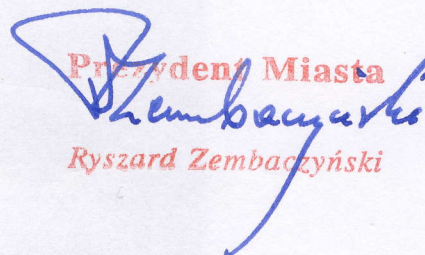 Prezydent Miasta
RZembaczyński
Ryszard Zembaczyński